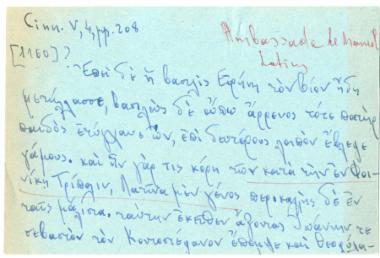 Cinn. V, 4, pp. 208
Ambassade de Manuel
[1160]?
Latins
Ἐπεὶ δὲ ἡ βασιλὶς Εἰρήνη τὸν βίον ἤδη
μετήλλαξε, βασιλεὺς δὲ οὔπω ἄρρενος τότε πατὴρ
παιδὸς ἐτύγχανεν ὤν, ἐπὶ δευτέρους λοιπὸν ἔβλεπε
γάμους. καὶ ἦν γάρ τις κόρη τῶν κατὰ τὴν ἐν Φοι-
νίκῃ Τρίπολιν, Λατῖνα μὲν γένος περικαλλὴς δὲ ἐν
ταῖς μάλιστα. ταύτην ἐκεῖθεν ἄξοντας Ἰωάννην τε
σεβαστὸν τὸν Κοντοστέφανον ἔπεμψε καὶ Θεοφύλα-